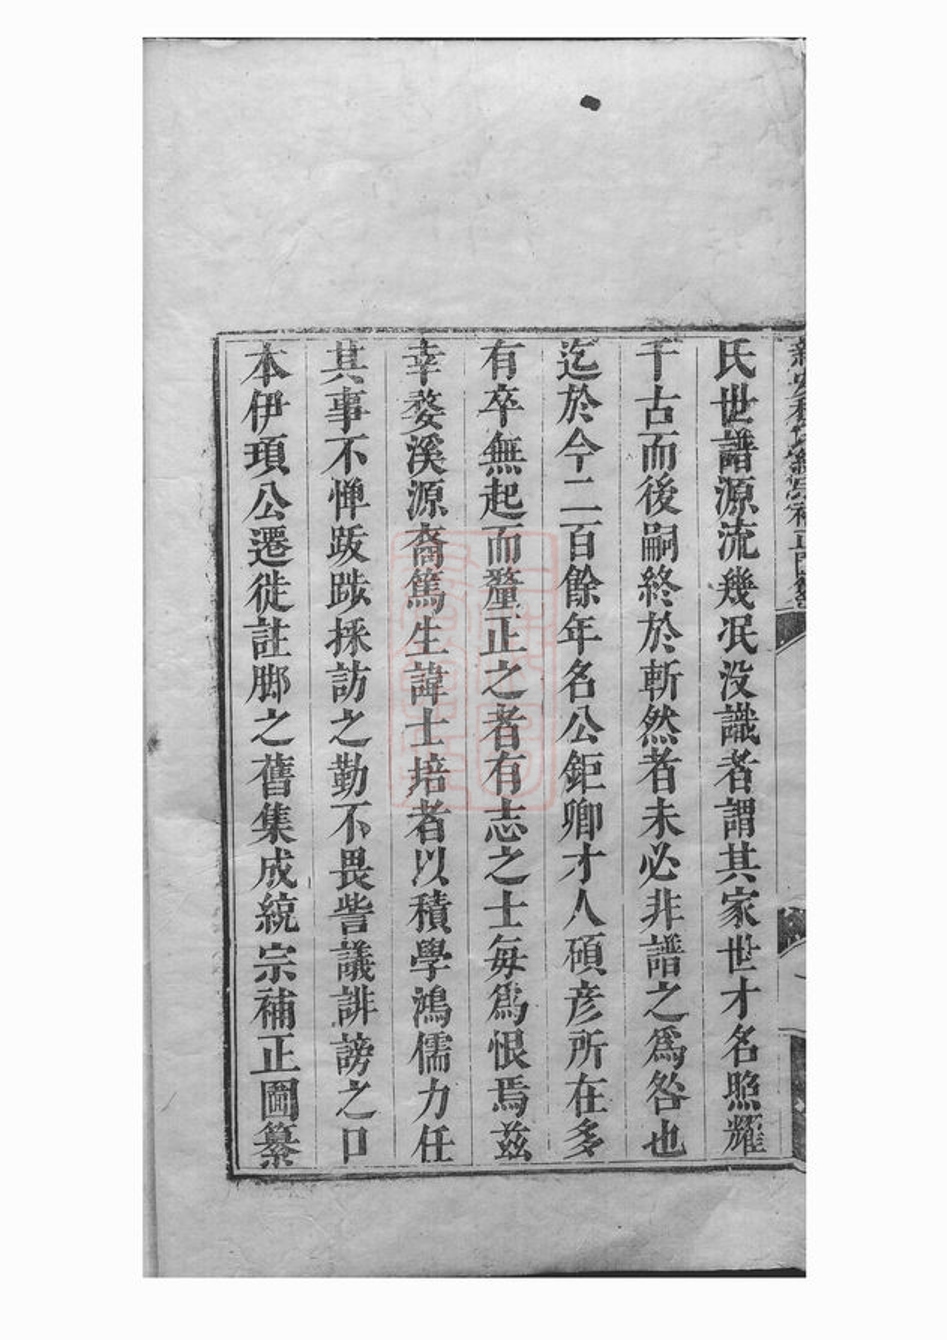 氏世譜源流幾泯没識者謂其家世才名照耀
千古而後嗣終於斬然者未必非譜之爲咎也
迄於今二百餘年名公鉅卿才人碩彦所在多
有卒無起而釐正之者有志之士每爲恨焉兹
幸婺溪源裔篤生諱士培者以積學鴻儒力任
其事不憚跋踄採訪之勤不畏訾議誹謗之口
本伊頊公遷徙註脚之舊集成統宗補正圖纂